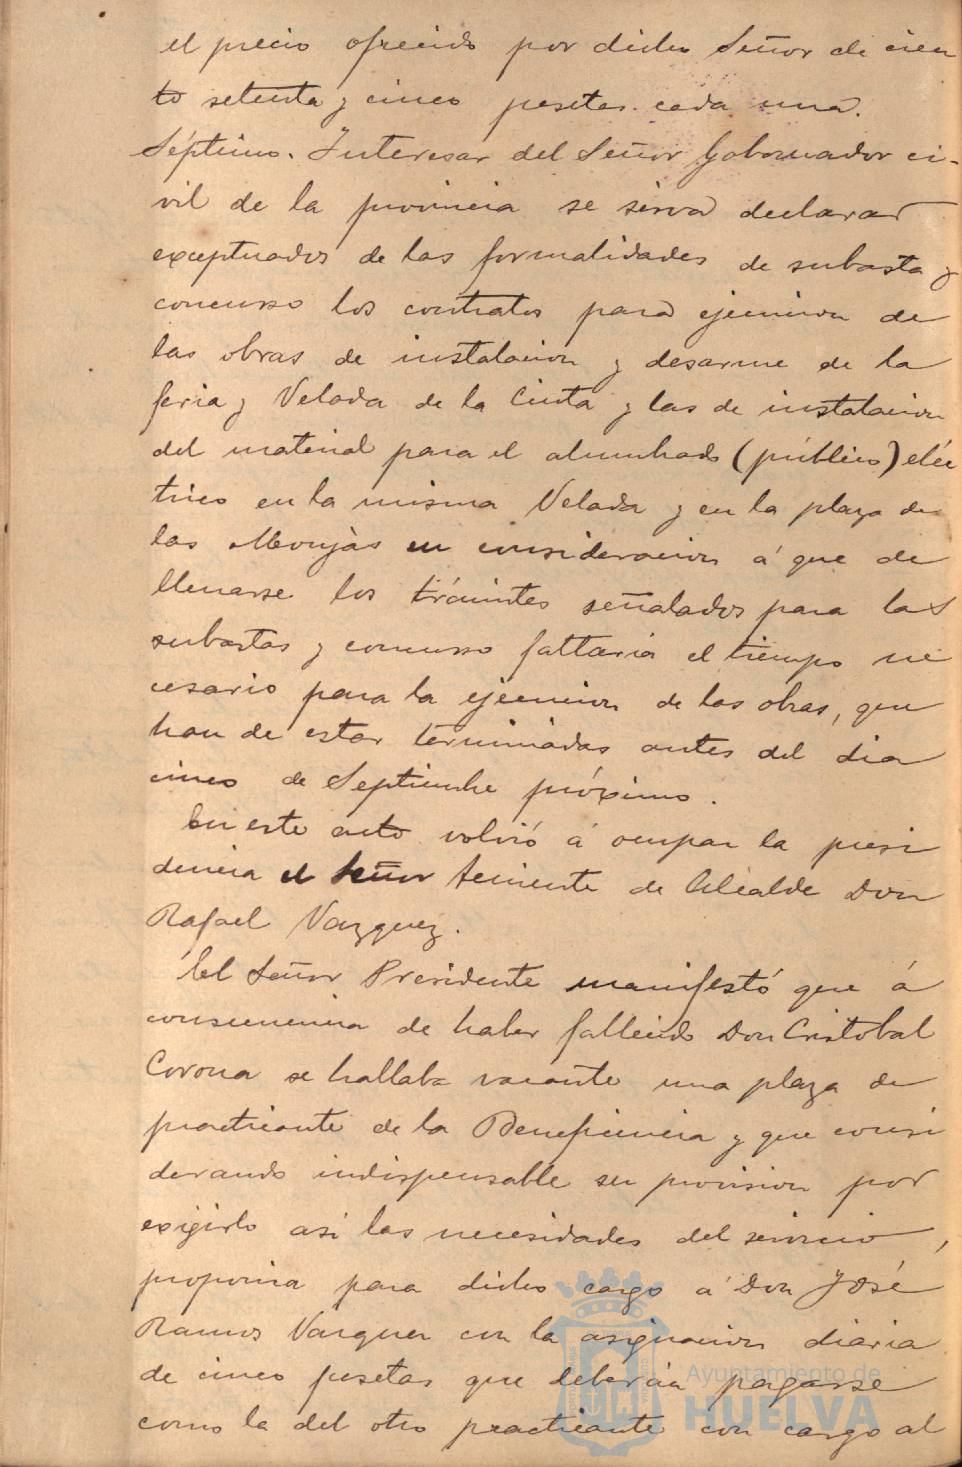 el precio ofrecido por dicho Señor de cien
to setenta y cinco pesetas cada una.
Séptimo. Interesar del Señor Gobernador ci-
vil de la provincia se sirva declarar
exceptuados de las formalidades de subasta y
concurso los contratos para ejecucion de
las obras de instalacion y desarme de la
feria y Velada de la Cinta y las de instalacion
del material para el alumbrado (público) eléc
trico en la misma Velada y en la plaza de
las Monjas en consideracion á que de
llenarse los trámites señalados para las
subastas y concurso faltaria el tiempo ne
cesario para la ejecucion de las obras, que
han de estar terminadas antes del dia
cinco de Septiembre próximo.
En este acto volvió á ocupar la presi
dencia el Señor teniente de Alcalde Don
Rafael Vazquez.
El Señor Presidente manifestó que á
consecuencia de haber fallecido Don Cristobal
Corona se hallaba vacante una plaza de
practicante de la Beneficencia y que consi
derando indispensable su provision por
exigirlo asi las necesidades del servicio,
proponia para dicho cargo á Don José
Ramos Vazquez con la asignacion diaria
de cinco pesetas que deberán pagarse
como la del otro practicante con cargo al
Ayuntamiento de
HUELVA